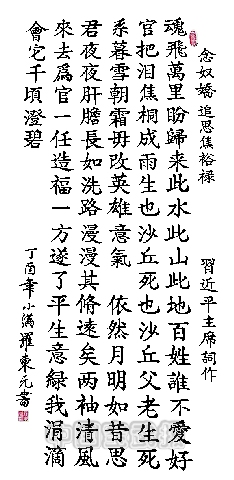 念奴嬌 追思焦裕祿
習近平主席詞作
魂飛萬里盼歸来此水此山此地百姓誰不愛好
官把泪焦桐成雨生也沙丘死也沙丘父老生死
系暮雪朝霜毋改英雄意氣 依然月明如昔思
君夜夜肝膽長如洗路漫漫其脩遠矣两袖清風
來去爲官一任造福一方遂了平生意緑我涓滴
會它千頃澄碧
丁酉秊小滿羅東元書